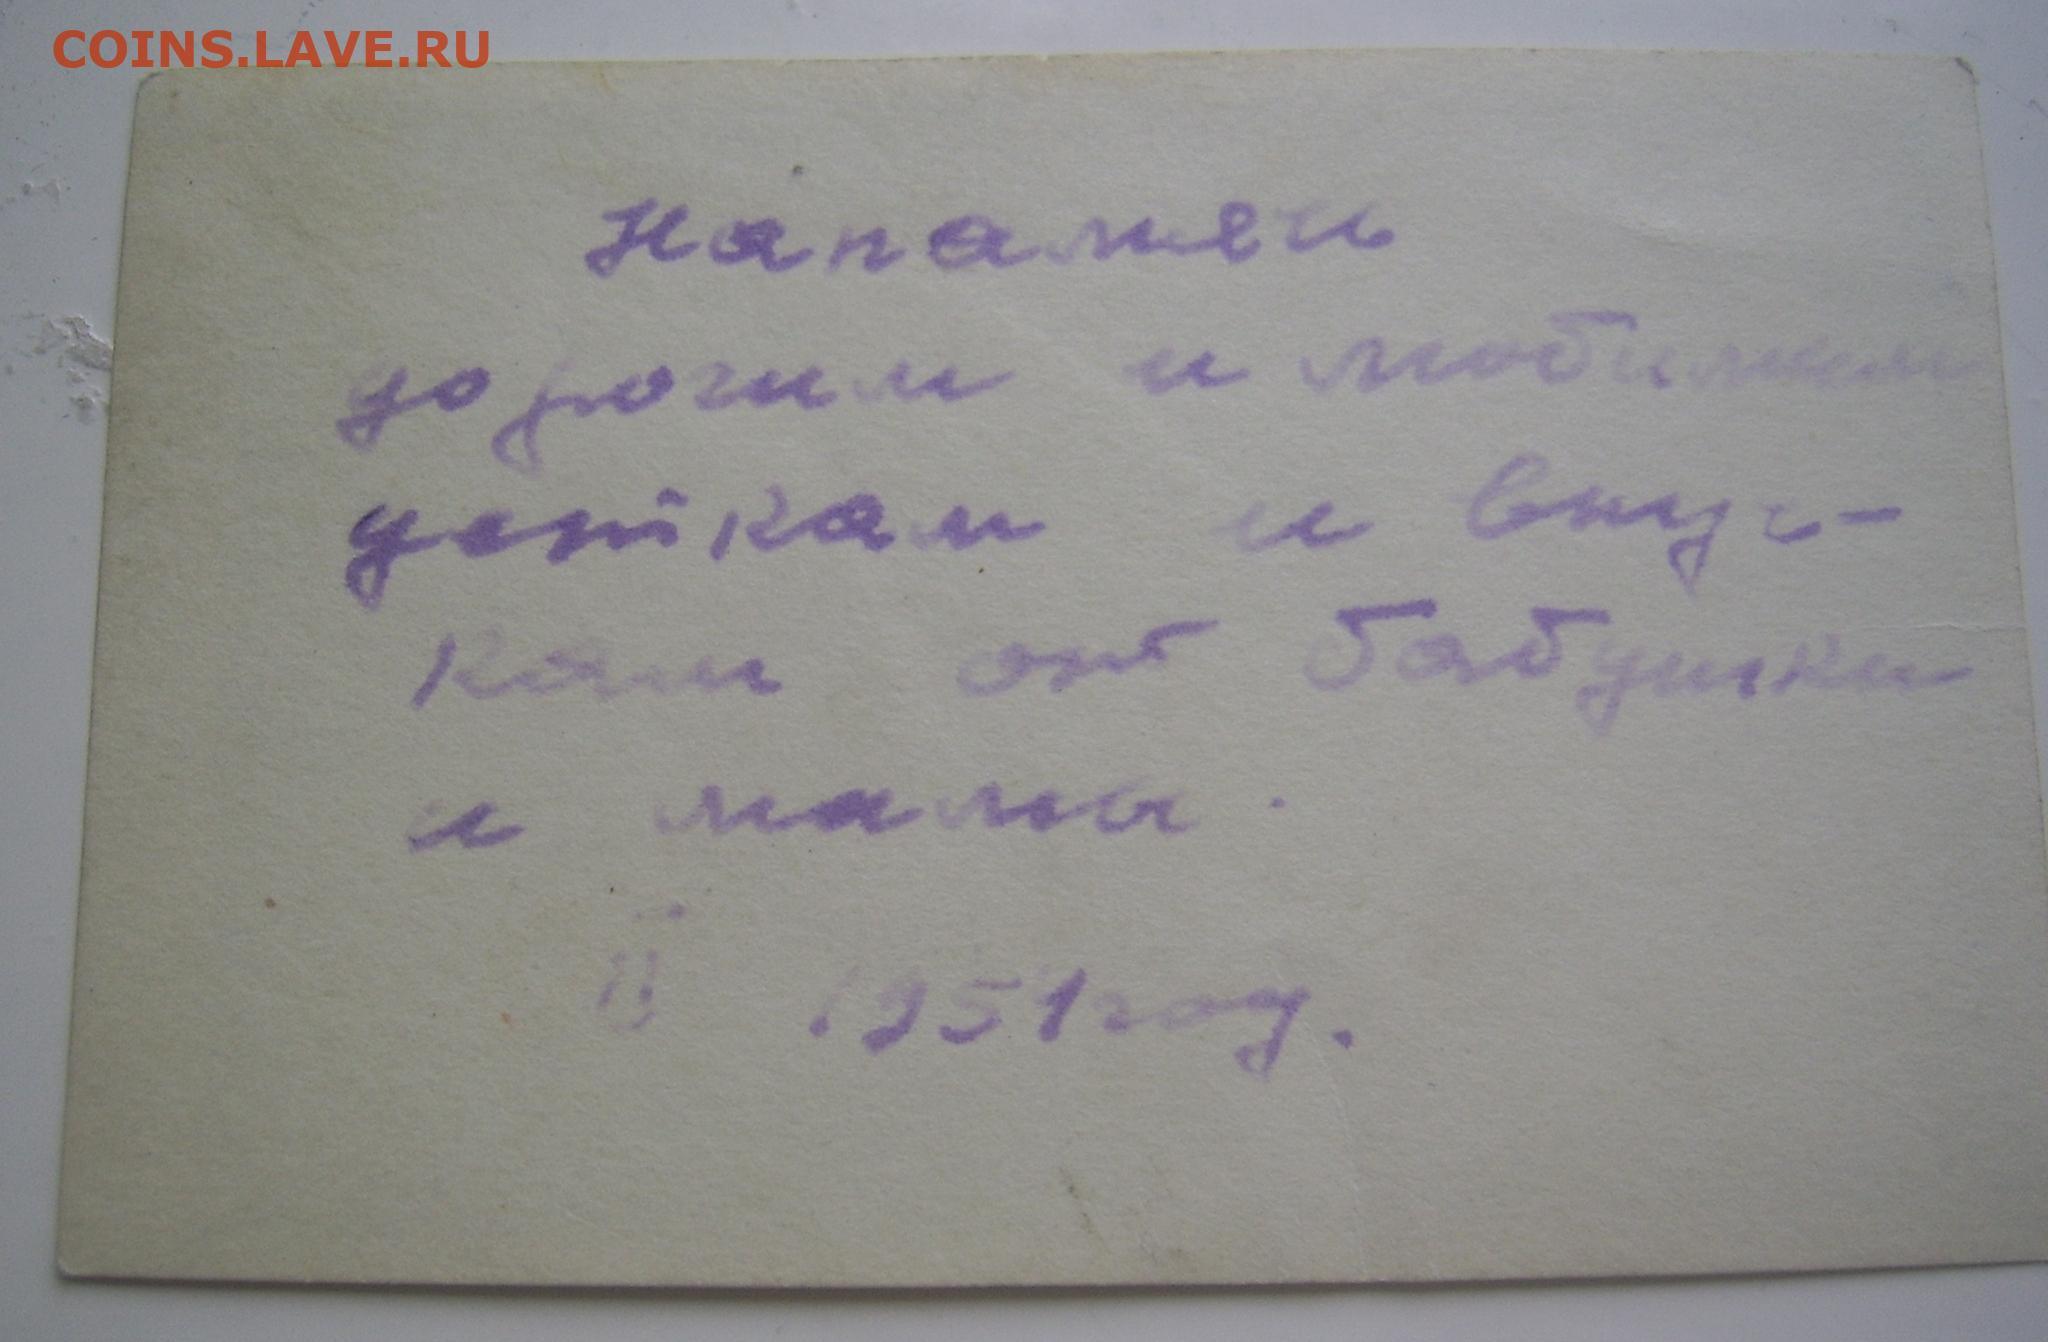 COINS.LAVE.RU
Напамең
дорогим и любимым
деткам и внуч-
кам от бабушки
и мамы.
1951 год.